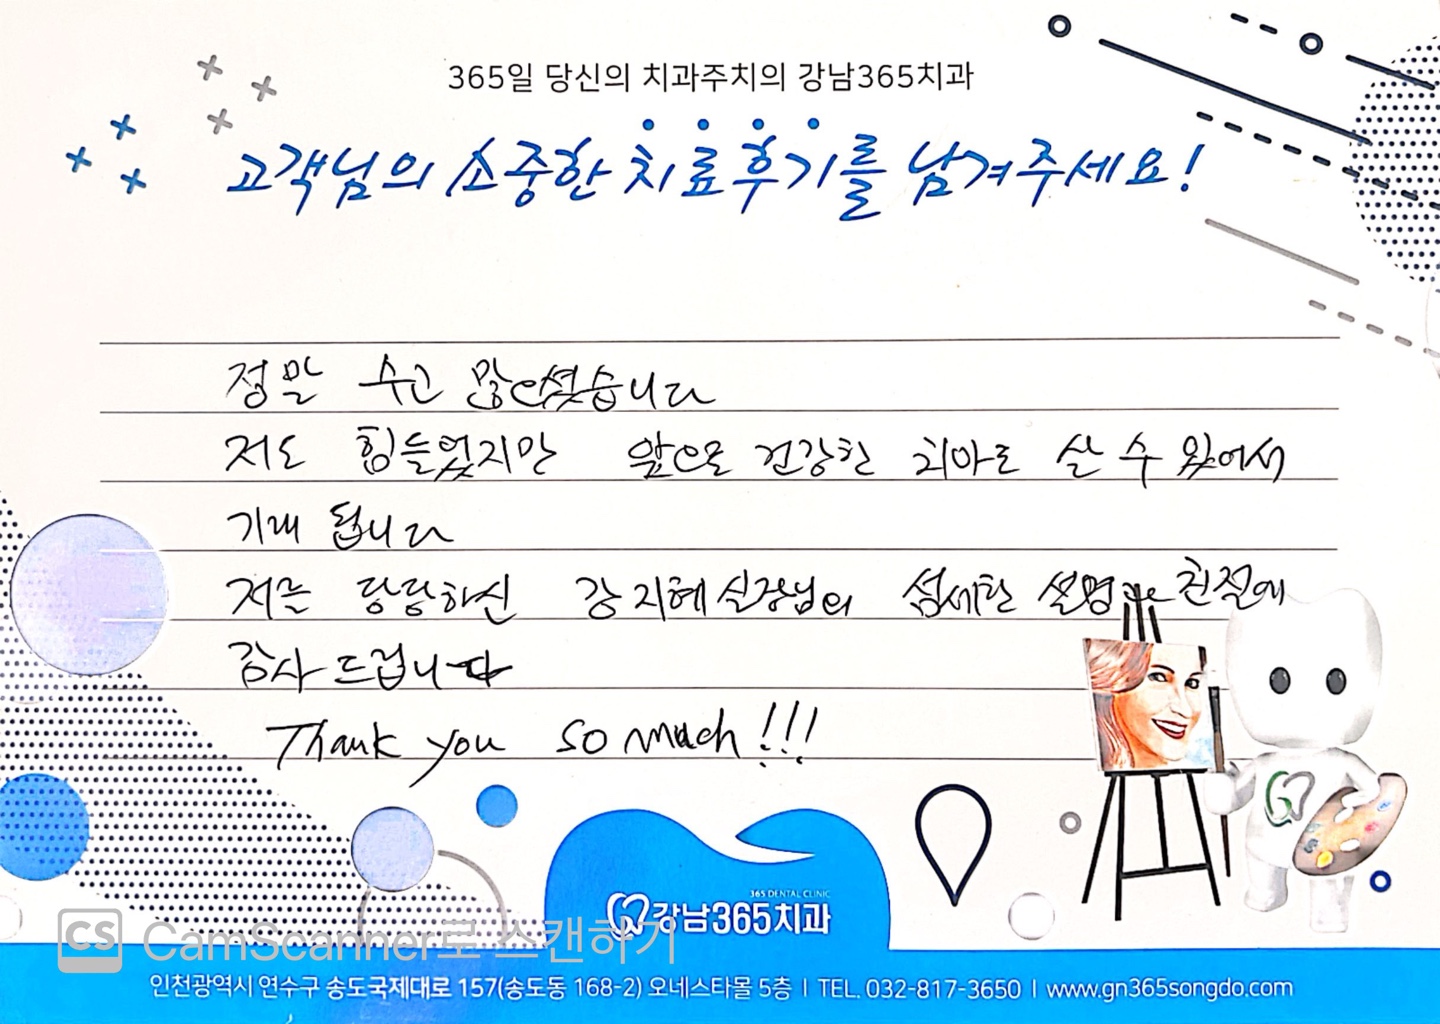 365일 당신의 치과주치의 강남365치과
고객님의 소중한 치료후기를 남겨주세요!
정말 수고 많으셨습니다
저도 힘들었지만 앞으로 건강한 치아로 살 수 있어서
기대 됩니다
저를 담당하신 강지혜실장님의 섬세한 설명과 친절에
감사 드립니다
Thank you so much!!!
365 DENTAL CLINIC
강남365치과
CS CamScanner로 스캔하기
인천광역시 연수구 송도국제대로 157(송도동 168-2) 오네스타몰 5층 | TEL. 032-817-3650 | www.gn365songdo.com